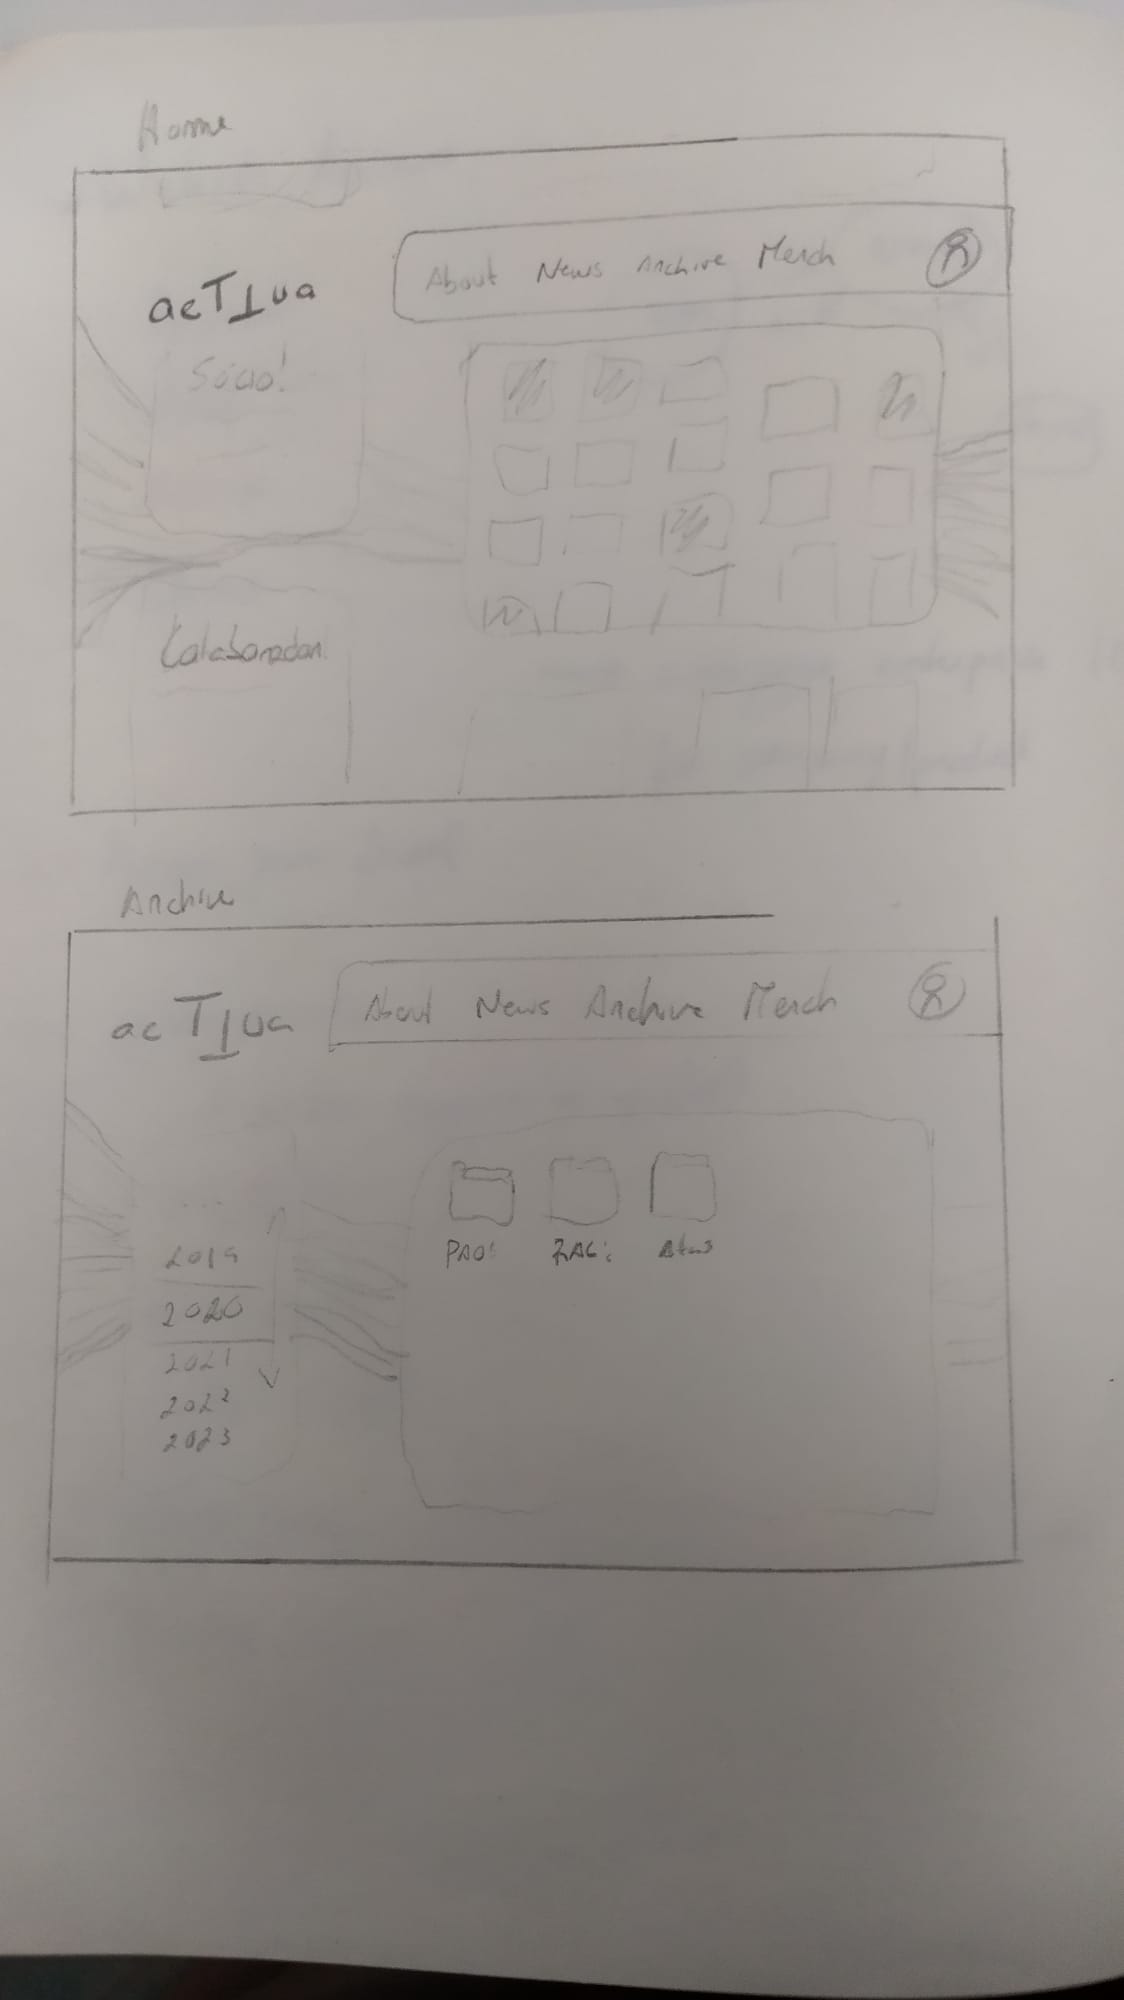 Home
acTꞱua
About News Archive Merch
Sócio!
Colaborador!
Archive
acTꞱua
About News Archive Merch
...
2019
2020
2021
2022
2023
PAO:
RAC:
Atas